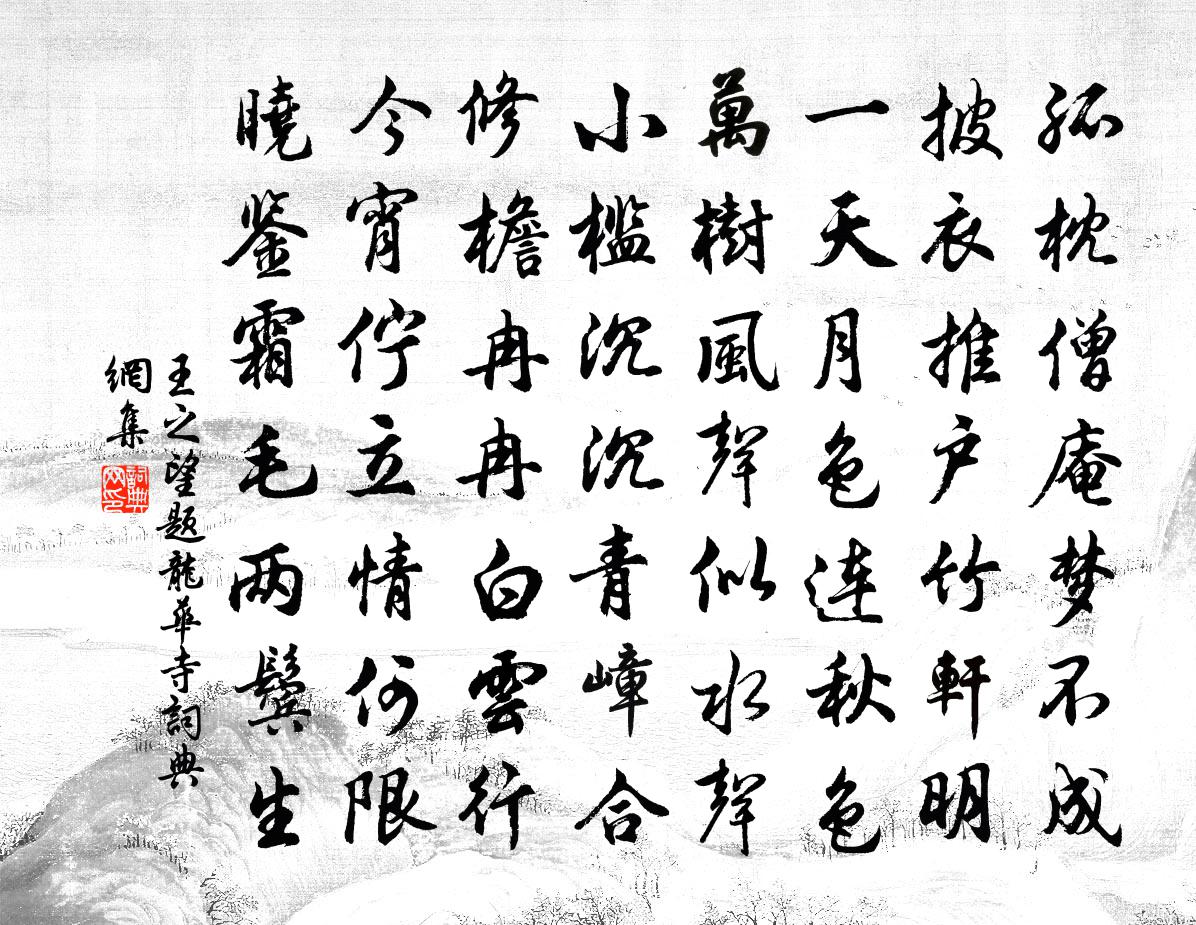 孤枕僧庵梦不成
披衣推户竹軒明
一天月色連秋色
萬樹風聲似水聲
小檻沉沉青嶂合
修檐冉冉白雲行
今宵佇立情何限
曉鉴霜毛两鬓生
王之望题龍華寺詞典
網集
詞典网印